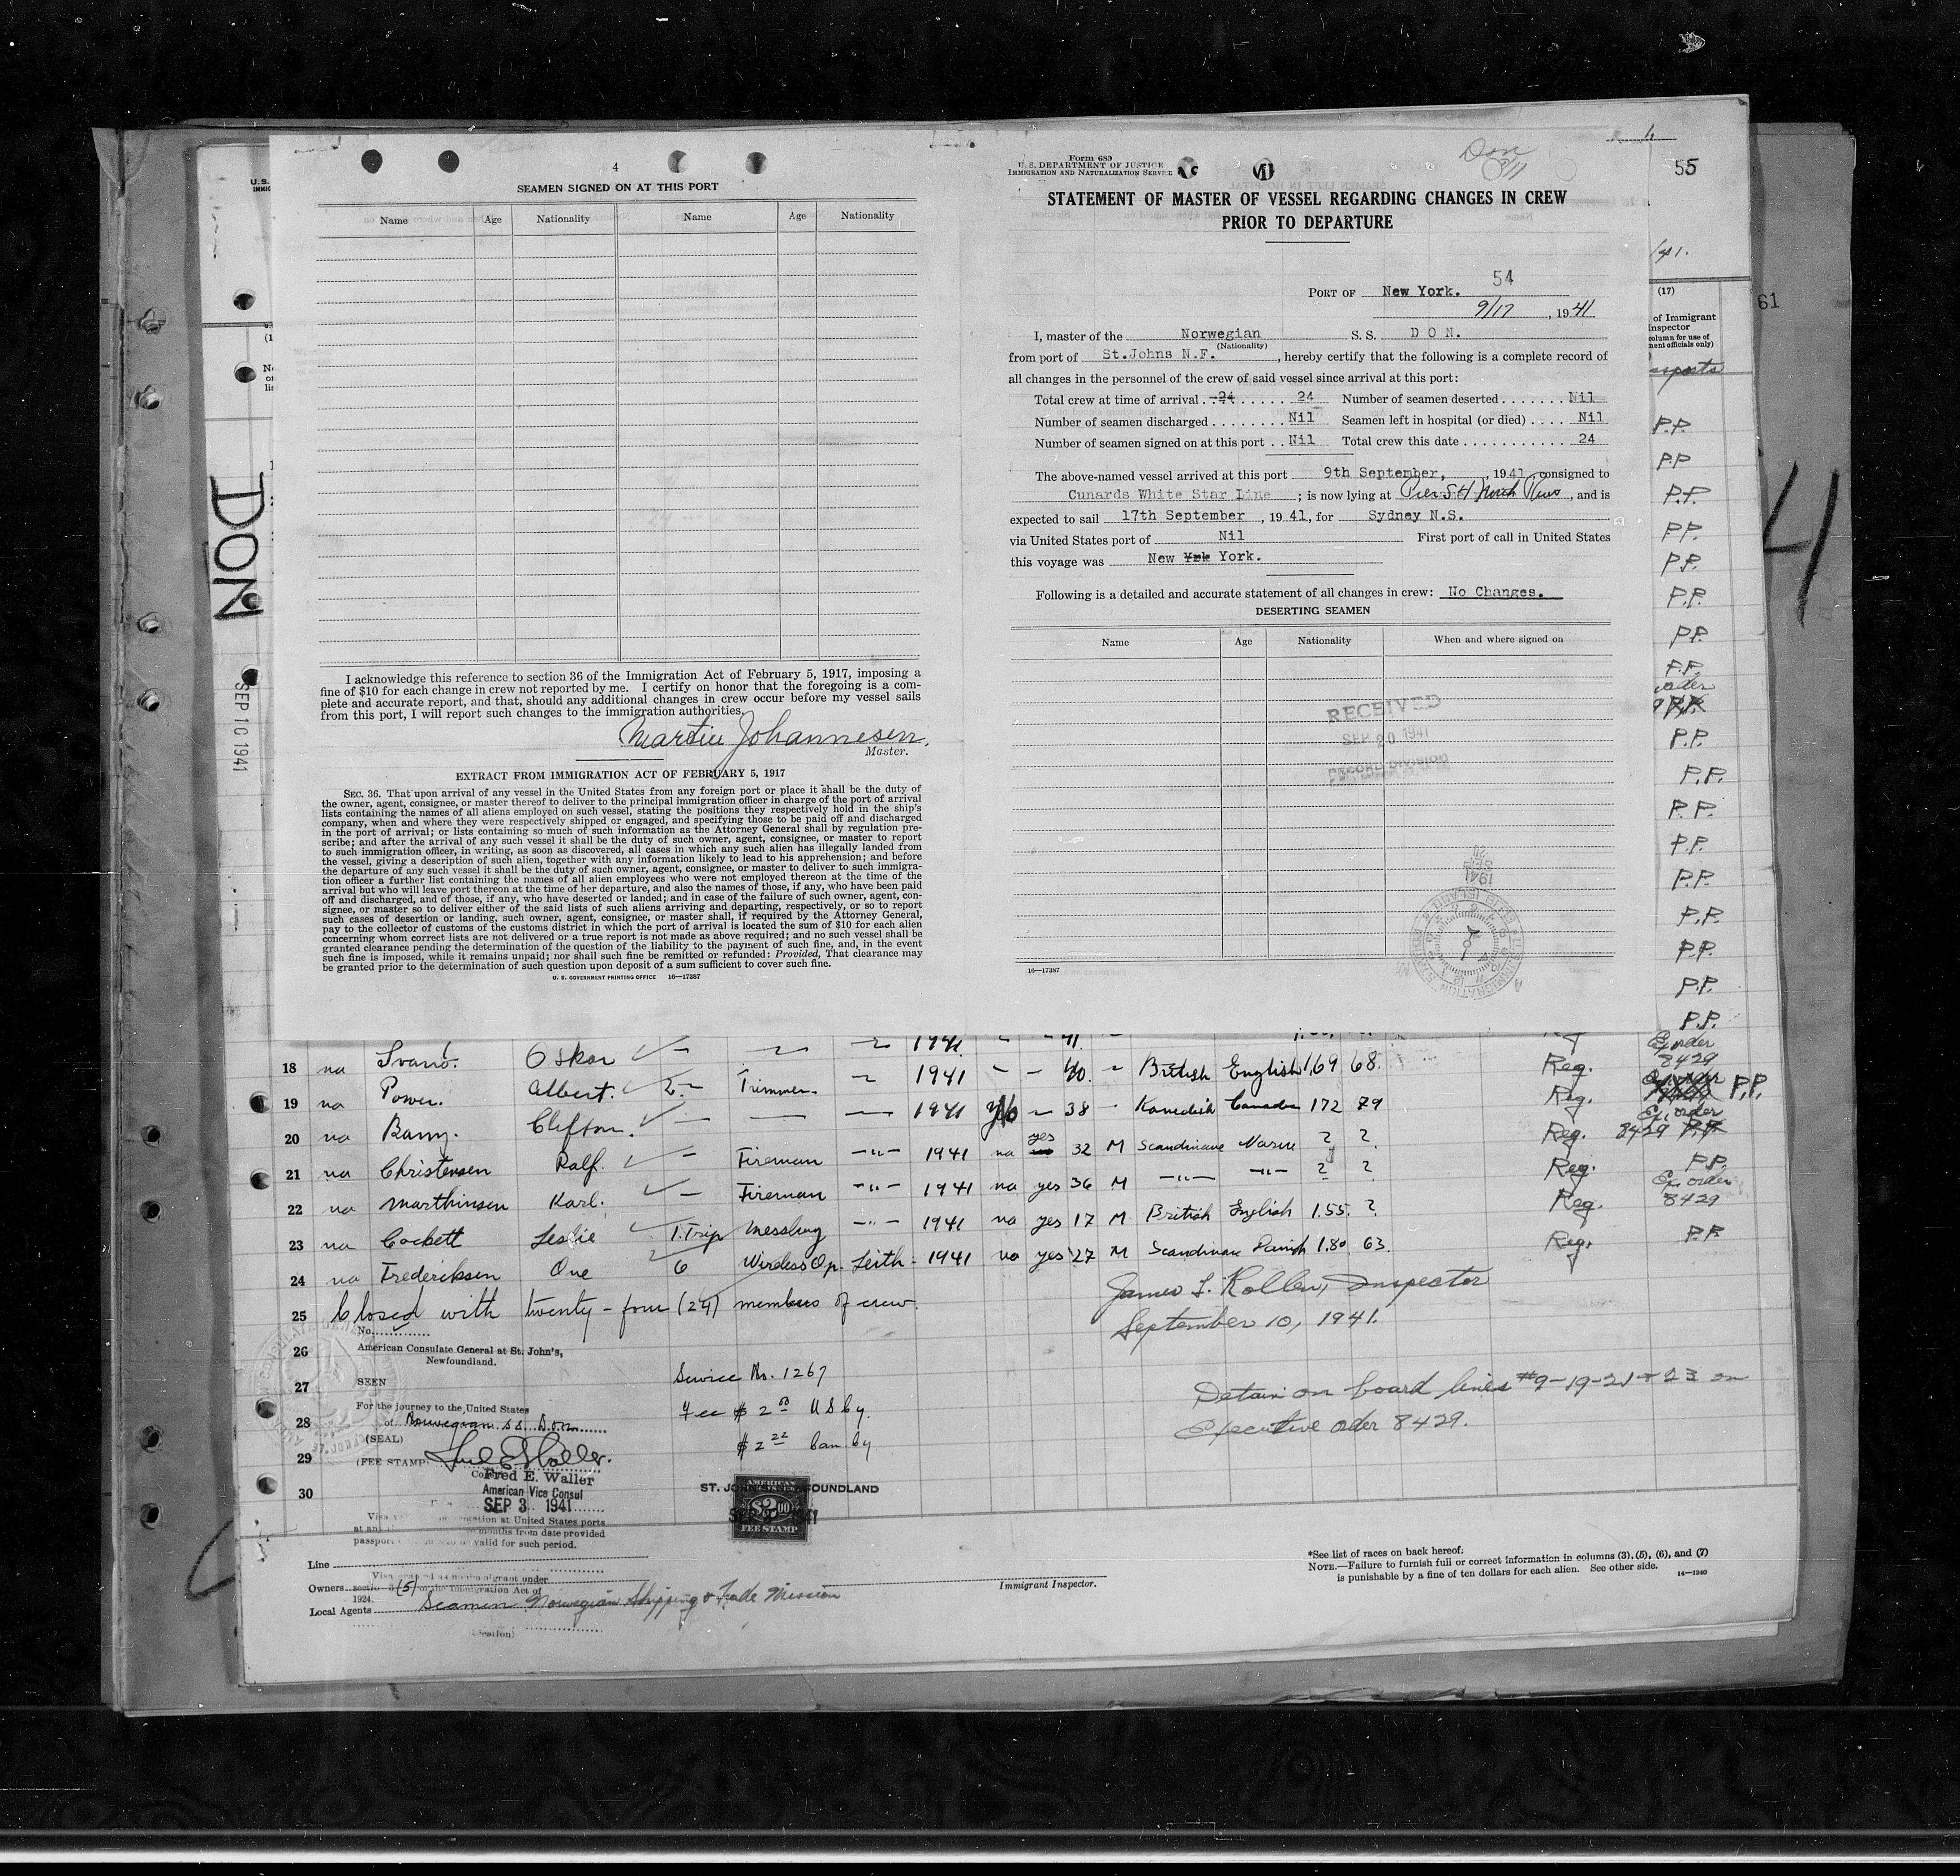 4
SEAMEN SIGNED ON AT THIS PORT
Name Age Nationality Name Age Nationality
I acknowledge this reference to section 36 of the Immigration Act of February 5, 1917, imposing a
fine of $10 for each change in crew not reported by me. I certify on honor that the foregoing is a com-
plete and accurate report, and that, should any additional changes in crew occur before my vessel sails
from this port, I will report such changes to the immigration authorities.
Martin Johannesen,
Master.
EXTRACT FROM IMMIGRATION ACT OF FEBRUARY 5, 1917
SEC. 36. That upon arrival of any vessel in the United States from any foreign port or place it shall be the duty of
the owner, agent, consignee, or master thereof to deliver to the principal immigration officer in charge of the port of arrival
lists containing the names of all aliens employed on such vessel, stating the positions they respectively hold in the ship's
company, when and where they were respectively shipped or engaged, and specifying those to be paid off and discharged
in the port of arrival; or lists containing so much of such information as the Attorney General shall by regulation pre-
scribe; and after the arrival of any such vessel it shall be the duty of such owner, agent, consignee, or master to report
to such immigration officer, in writing, as soon as discovered, all cases in which any such alien has illegally landed from
the vessel, giving a description of such alien, together with any information likely to lead to his apprehension; and before
the departure of any such vessel it shall be the duty of such owner, agent, consignee, or master to deliver to such immigra-
tion officer a further list containing the names of all alien employees who were not employed thereon at the time of the
arrival but who will leave port thereon at the time of her departure, and also the names of those, if any, who have been paid
off and discharged, and of those, if any, who have deserted or landed; and in case of the failure of such owner, agent, con-
signee, or master so to deliver either of the said lists of such aliens arriving and departing, respectively, or so to report
such cases of desertion or landing, such owner, agent, consignee, or master shall, if required by the Attorney General,
pay to the collector of customs of the customs district in which the port of arrival is located the sum of $10 for each alien
concerning whom correct lists are not delivered or a true report is not made as above required; and no such vessel shall be
granted clearance pending the determination of the question of the liability to the payment of such fine, and, in the event
such fine is imposed, while it remains unpaid; nor shall such fine be remitted or refunded: Provided, That clearance may
be granted prior to the determination of such question upon deposit of a sum sufficient to cover such fine.
U. S. GOVERNMENT PRINTING OFFICE 16—17387
Form 689
U. S. DEPARTMENT OF JUSTICE
IMMIGRATION AND NATURALIZATION SERVICE
Don
55
STATEMENT OF MASTER OF VESSEL REGARDING CHANGES IN CREW
PRIOR TO DEPARTURE
54
PORT OF New York.
9/17, 1941
I, master of the Norwegian S. S. D O N.
(Nationality)
from port of St.Johns N.F., hereby certify that the following is a complete record of
all changes in the personnel of the crew of said vessel since arrival at this port:
Total crew at time of arrival 24 24 Number of seamen deserted Nil
Number of seamen discharged Nil Seamen left in hospital (or died) Nil
Number of seamen signed on at this port Nil Total crew this date 24
The above-named vessel arrived at this port 9th September, 1941, consigned to
Cunards White Star Line; is now lying at Pier 54 North River, and is
expected to sail 17th September, 1941, for Sydney N.S.
via United States port of Nil First port of call in United States
this voyage was New Yrk York.
Following is a detailed and accurate statement of all changes in crew: No Changes.
DESERTING SEAMEN
Name Age Nationality When and where signed on
RECEIVED
SEP 20 1941
RECORD DIVISION
16—17387
DON
SEP 10 1941
61
4
(17)
of Immigrant
Inspector
P.P.
P.P.
P.P.
P.P.
P.P.
P.P.
P.P.
P.P.
P.P.
P.P.
P.P.
P.P.
P.P.
P.P.
P.P.
P.P.
P.P.
P.P.
18 na Svanö. Oskar 1941
19 na Power. Albert. 2 Trimmer. 1941 40 British English 1,69 68. Reg. Ex. order 8429
20 na Barry. Clifton. 1941 38 Kanedish Canada 172 79 Reg. P.P.
21 na Christensen Ralf. Fireman 1941 na yes 32 M Scandinave Norse ? ? Reg. Ex. order 8429 P.P.
22 na Marthinsen Karl. Fireman 1941 na yes 36 M ? ? Reg. P.P.
23 na Cockett Leslie 1.Trip Messboy 1941 na yes 17 M British English 1.55. ? Reg. Ex. order 8429
24 na Frederiksen Ove 6 Wireless Op. Leith 1941 no yes 27 M Scandinave Danish 1.80 63. Reg. P.P.
25 Closed with twenty-four (24) members of crew.
James L. Rollen, Inspector
September 10, 1941.
26
27
28
29
30
No.
American Consulate General at St. John's,
Newfoundland.
SEEN
For the journey to the United States
of Norwegian ss. Don
(SEAL)
(FEE STAMP)
Fred E. Waller
American Vice Consul
SEP 3 1941
Service No. 1267
Fee $ 2.00 US cy.
$ 2.22 Can cy
ST. JOHN'S, NEWFOUNDLAND
AMERICAN
$2.00
FEE STAMP
Detain on board lines #9-19-21+23 on
Executive order 8429.
Line
Owners
Local Agents Norwegian Shipping & Trade Mission
Immigrant Inspector.
*See list of races on back hereof.
NOTE.—Failure to furnish full or correct information in columns (3), (5), (6), and (7)
is punishable by a fine of ten dollars for each alien. See other side. 14—1240